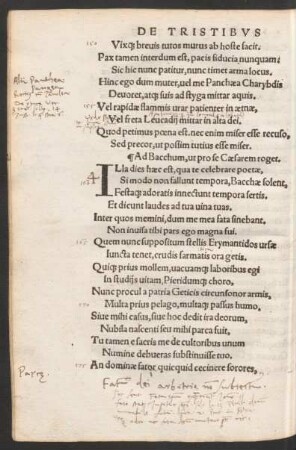 DE TRISTIBVS
Vixq; breuis tutos murus ab hoste facit.
Pax tamen interdum est, pacis fiducia, nunquam:
Sic hic nunc patitur, nunc timet arma locus.
Hinc ego dum muter, uel me Panchæa Charybdis
Deuoret, atq; suis ad styga mittat aquis.
Vel rapidæ flammis urar patienter in ætnæ,
Vel freta Leucadij mittar in alta dei.
Quod petimus pœna est. nec enim miser esse recuso,
Sed precor, ut possim tutius esse miser.
¶Ad Bacchum, ut pro se Cæsarem roget.
ILla dies hæc est, qua te celebrare poetæ,
Si modo non fallunt tempora, Bacche solent,
Festaq; adoratis innectunt tempora sertis.
Et dicunt laudes ad tua uina tuas.
Inter quos memini, dum me mea fata sinebant.
Non inuisa tibi pars ego magna fui.
Quem nunc suppositum stellis Erymantidos ursæ
Iuncta tenet, crudis sarmatis ora getis.
Quiq; prius mollem, uacuamq; laboribus egi
In studijs uitam, Pieridumq; choro.
Nunc procul a patria Geticis circunsonor armis,
Multa prius pelago, multaq; passus humo,
Siue mihi casus, siue hoc dedit ira deorum,
Nubila nascenti seu mihi parca fuit.
Tu tamen e sacris me de cultoribus unum
Numine debueras substinuisse tuo.
An dominæ fati quicquid cecinere sorores,